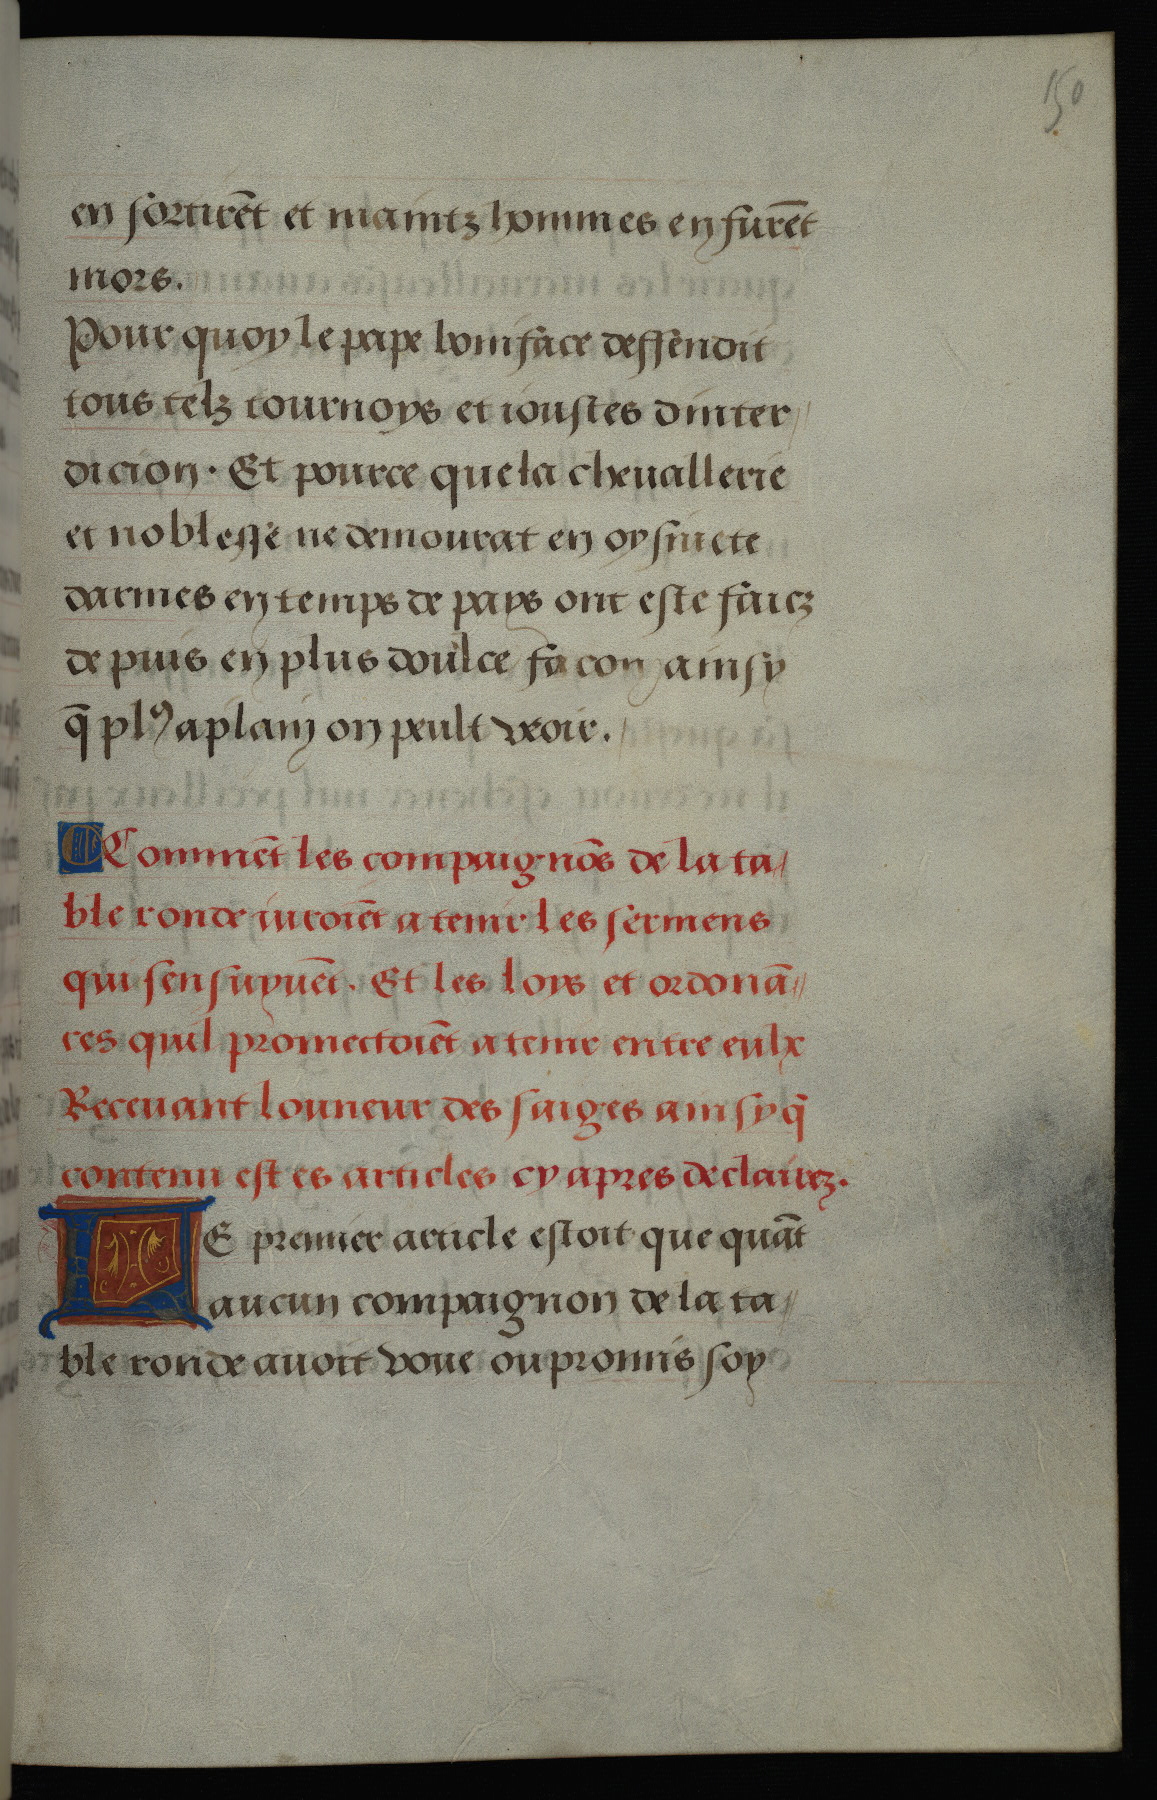 150
en sortirēt et maintz hommes en furēt
mors.
Pour quoy le pape boniface deffendit
tous telz tournoys et ioustes d inter//
dicion. Et pource que la cheuallerie
et noblesse ne demourat en oysiuete
darmes en temps de pays ont este faicz
depuis en plus doulce facon ainsy
q̄ plꝰ a plain on peult veoir.
¶ Commēt les compaignōs de la ta//
ble ronde iuroiēt a tenir les sermens
qui sensuyuēt. Et les loys et ordonā//
ces quil promectoiēt a tenir entre eulx
Receuant louneur des saiges ainsy q̄
contenu est es articles cy apres declairez.
LE premier article estoit que quāt
aucun compaignon de la ta//
ble ronde auoit voue ou promis soy